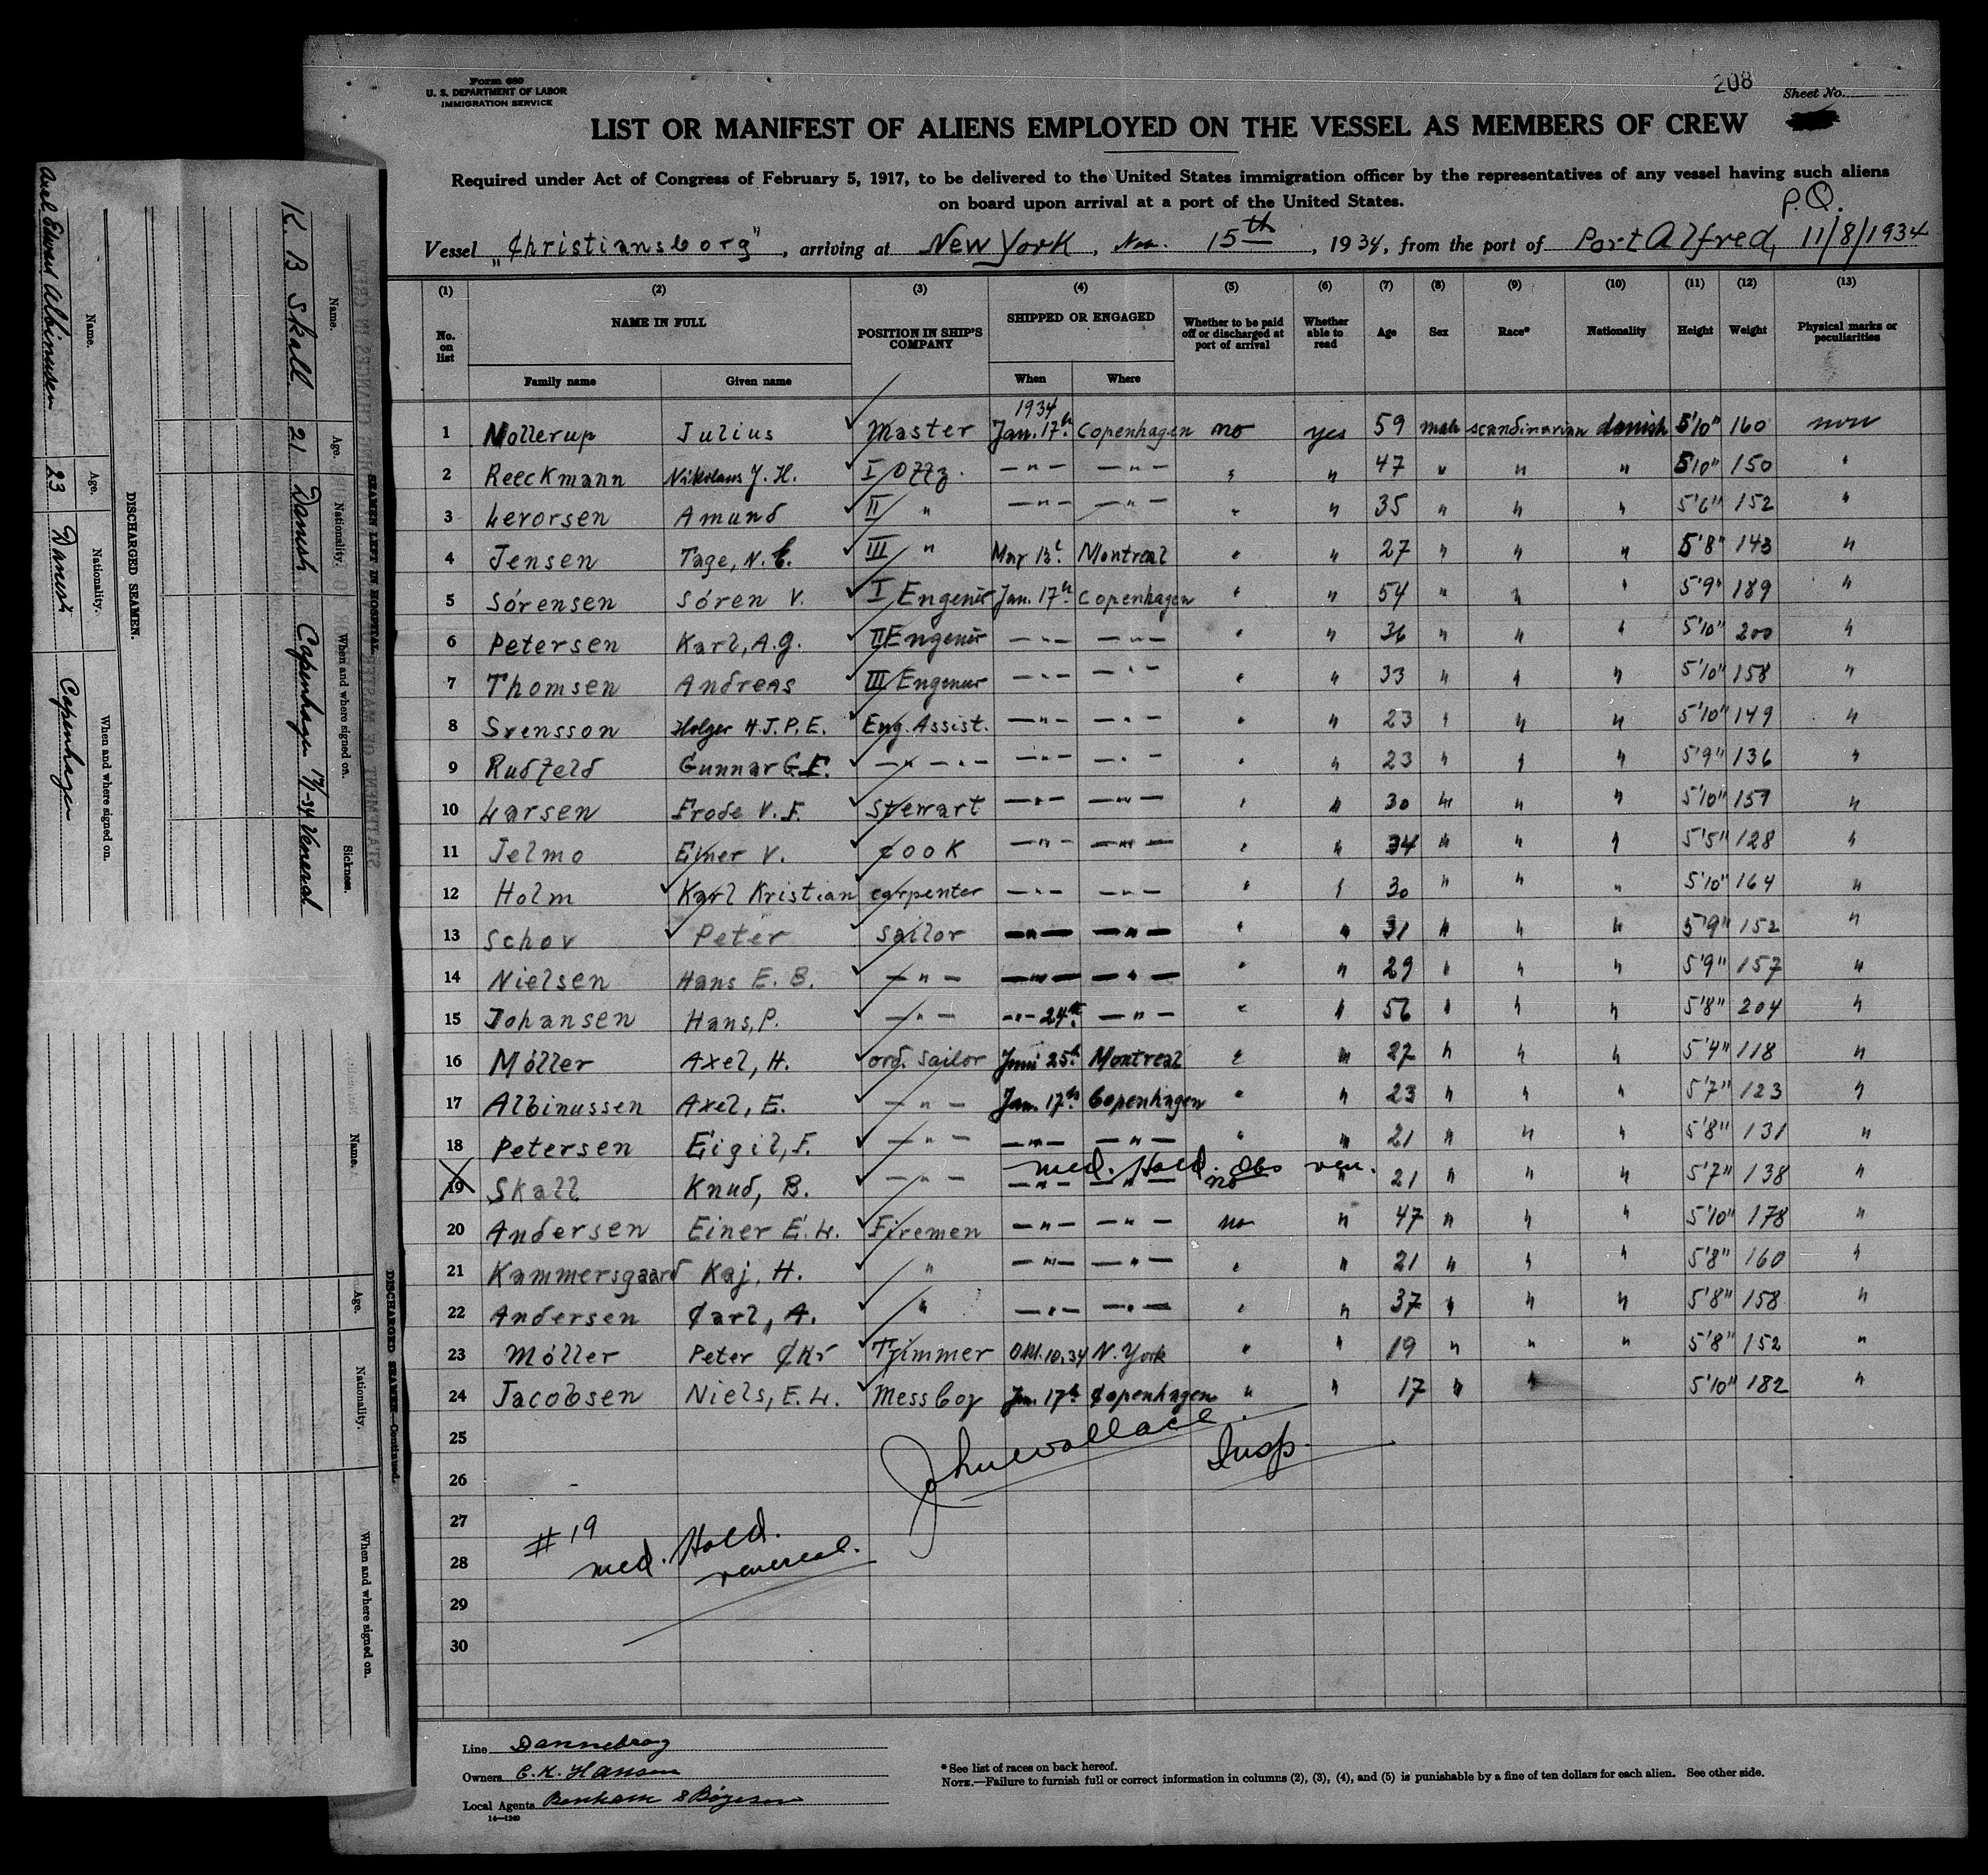 Form 680
U. S. DEPARTMENT OF LABOR
IMMIGRATION SERVICE
208
Sheet No.
LIST OR MANIFEST OF ALIENS EMPLOYED ON THE VESSEL AS MEMBERS OF CREW
Required under Act of Congress of February 5, 1917, to be delivered to the United States immigration officer by the representatives of any vessel having such aliens
on board upon arrival at a port of the United States.
P.Q.
Vessel "Christiansborg", arriving at New York, Nov. 15th, 1934, from the port of Port Alfred, 11/8/1934
(1) (2) (3) (4) (5) (6) (7) (8) (9) (10) (11) (12) (13)
No. on list NAME IN FULL POSITION IN SHIP'S COMPANY SHIPPED OR ENGAGED Whether to be paid off or discharged at port of arrival Whether able to read Age Sex Race* Nationality Height Weight Physical marks or peculiarities
Family name Given name When Where
1934
1 Mollerup Julius Master Jan. 17th Copenhagen no yes 59 male scandinavian danish 5'10" 160 non
2 Reeckmann Nikolaus J. H. I Offz. —"— —"— " " 47 " " " 5'10" 150 "
3 Levorsen Amund II " —"— —"— " " 35 " " " 5'6" 152 "
4 Jensen Tage, N. C. III " Mar 13t Montreal " " 27 " " " 5'8" 143 "
5 Sörensen Sören V. I Engenir Jan. 17th Copenhagen " " 54 " " " 5'9" 189 "
6 Petersen Karl, A.G. II Engenir —"— —"— " " 36 " " " 5'10" 200 "
7 Thomsen Andreas III Engenir —"— —"— " " 33 " " " 5'10" 158 "
8 Svensson Holger H.J.P.E. Eng. Assist. —"— —"— " " 23 " " " 5'10" 149 "
9 Rudfeld Gunnar G.E. —"—"— —"— —"— " " 23 " " " 5'9" 136 "
10 Larsen Frode V. F. Stewart —"— —"— " " 30 " " " 5'10" 159 "
11 Jelmo Einer V. cook —"— —"— " " 34 " " " 5'5" 128 "
12 Holm Karl Kristian carpenter —"— —"— " " 30 " " " 5'10" 164 "
13 Schov Peter Sailor —"— —"— " " 31 " " " 5'9" 152 "
14 Nielsen Hans E. B. —"— —"— —"— " " 29 " " " 5'9" 157 "
15 Johansen Hans, P. —"— —"—24th —"— " " 56 " " " 5'8" 204 "
16 Möller Axel, H. ord. Sailor Juni 25th Montreal " " 27 " " " 5'4" 118 "
17 Albinussen Axel, E. —"— Jan. 17th Copenhagen " " 23 " " " 5'7" 123 "
18 Petersen Eigil, F. —"— —"— —"— " " 21 " " " 5'8" 131 "
med. Hold. Obs ven.
19 Skall Knud, B. —"— —"— —"— no " 21 " " " 5'7" 138 "
20 Andersen Einer E. L. Firemen —"— —"— no " 47 " " " 5'10" 178 "
21 Kammersgaard Kaj, H. " —"— —"— " " 21 " " " 5'8" 160 "
22 Andersen Carl, A. " —"— —"— " " 37 " " " 5'8" 158 "
23 Möller Peter Chr Trimmer Okt. 10.34 N. York " " 19 " " " 5'8" 152 "
24 Jacobsen Niels, E. L. Mess boy Jan. 17th Copenhagen " " 17 " " 5'10" 182 "
25
26
27
28
29
30
John Wallace
Insp.
#19
med. Hold.
venereal.
Line Dannebrog
Owners C. K. Hansen
Local Agents Benham & Boyesen
14—1240
*See list of races on back hereof.
NOTE.—Failure to furnish full or correct information in columns (2), (3), (4), and (5) is punishable by a fine of ten dollars for each alien. See other side.
SEAMEN LEFT IN HOSPITAL
Name. Age. Nationality. When and where signed on. Sickness.
K. B Skall 21 Danish Copenhagen 17/1-34 Veneral
DISCHARGED SEAMEN.
Name. Age. Nationality. When and where signed on.
Axel Edvard Albinussen 23 Danish Copenhagen
DISCHARGED SEAMEN—Continued.
Name. Age. Nationality. When and where signed on.